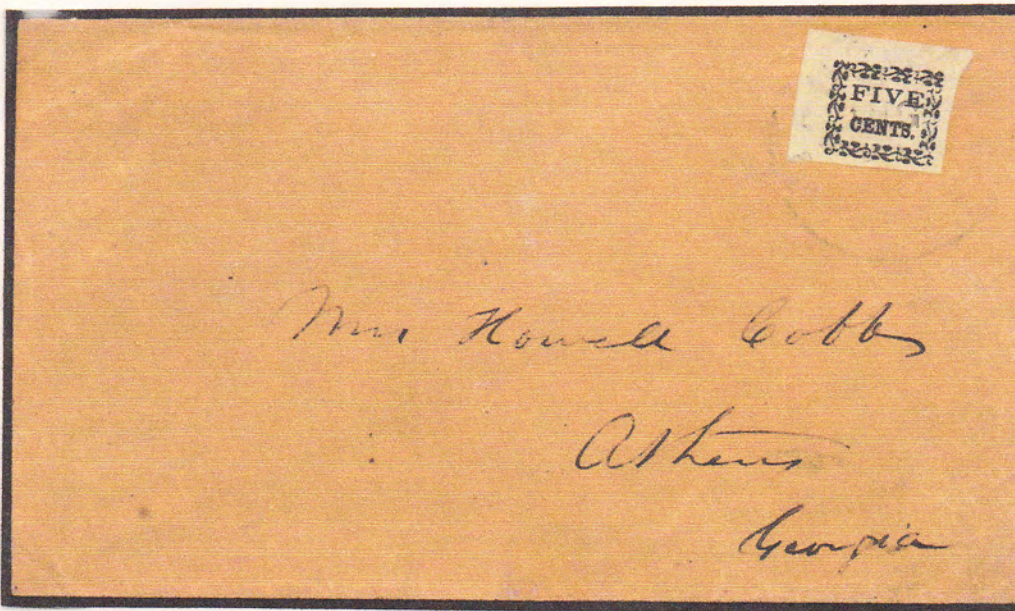 FIVE
CENTS.
Mrs Howell Cobb
Athens
Georgia